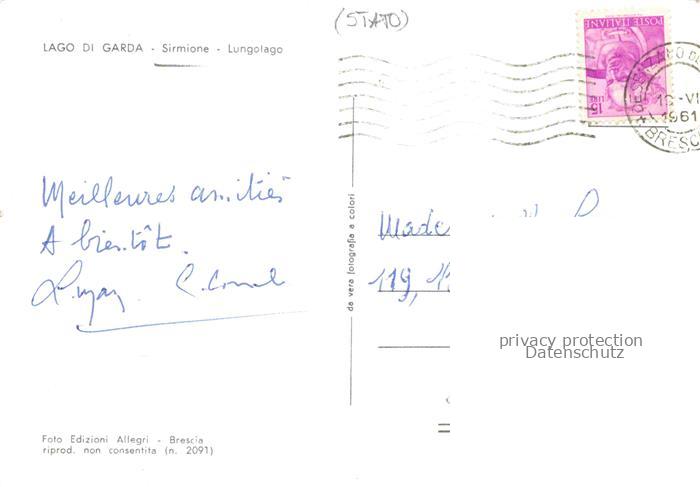 (STATO)
LAGO DI GARDA - Sirmione - Lungolago
POSTE ITALIANE
15
LIRE
-VI
1961
BRESC
Meilleures amitiés
A bientôt.
da vera fotografia a colori
Made
D
119,
privacy protection
Datenschutz
Foto Edizioni Allegri - Brescia
riprod. non consentita (n. 2091)